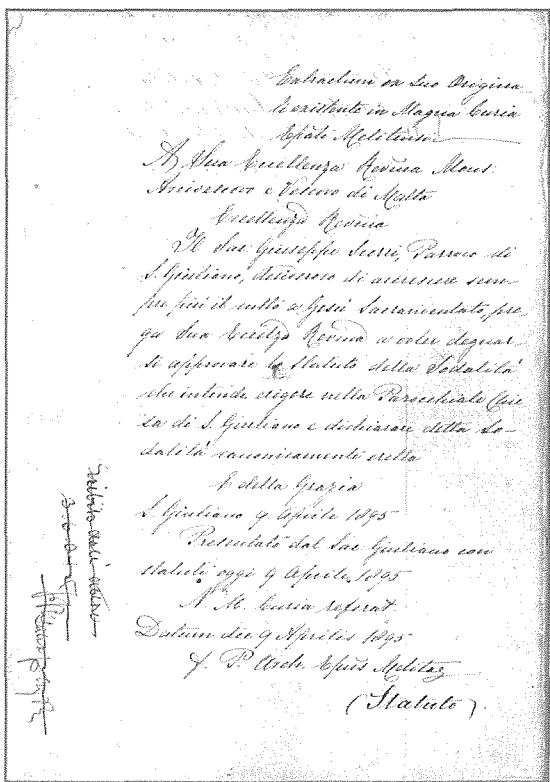 Extractum ex suo Origina
li existente in Magna Curia
Epāli Melitensi
A Sua Eccellenza Revma Mons:
Arcivescovo e Vescovo di Malta
Eccellenza Revma
Il Sac: Giuseppe Scerri, Parroco di
S. Giuliano, desideroso di accrescere sem-
pre più il culto a Gesù Sacramentato, pre
ga Sua Eccllza Revma a voler degnar-
si approvare lo Statuto della Sodalità
che intende erigere nella Parocchiale Chie
sa di S. Giuliano e dichiarare detta So-
dalità canonicamente eretta
E della Grazia
S. Giuliano 9 Aprile 1895
Presentato dal Sac Giuliano con
statuti oggi 9 Aprile, 1895
N. M. Curia referat
Datum die 9 Aprilis 1895
P. Arch. Epūs Melitae
(Statuto)